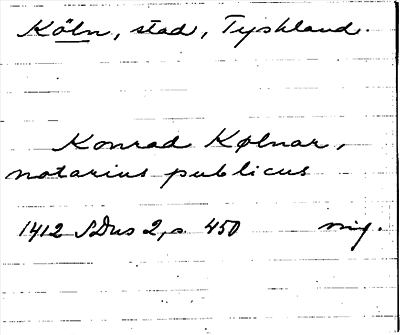 Köln, stad, Tyskland.
Konrad Kølnar,
notarius publicus
1412 SDns 2, s. 450 sig.